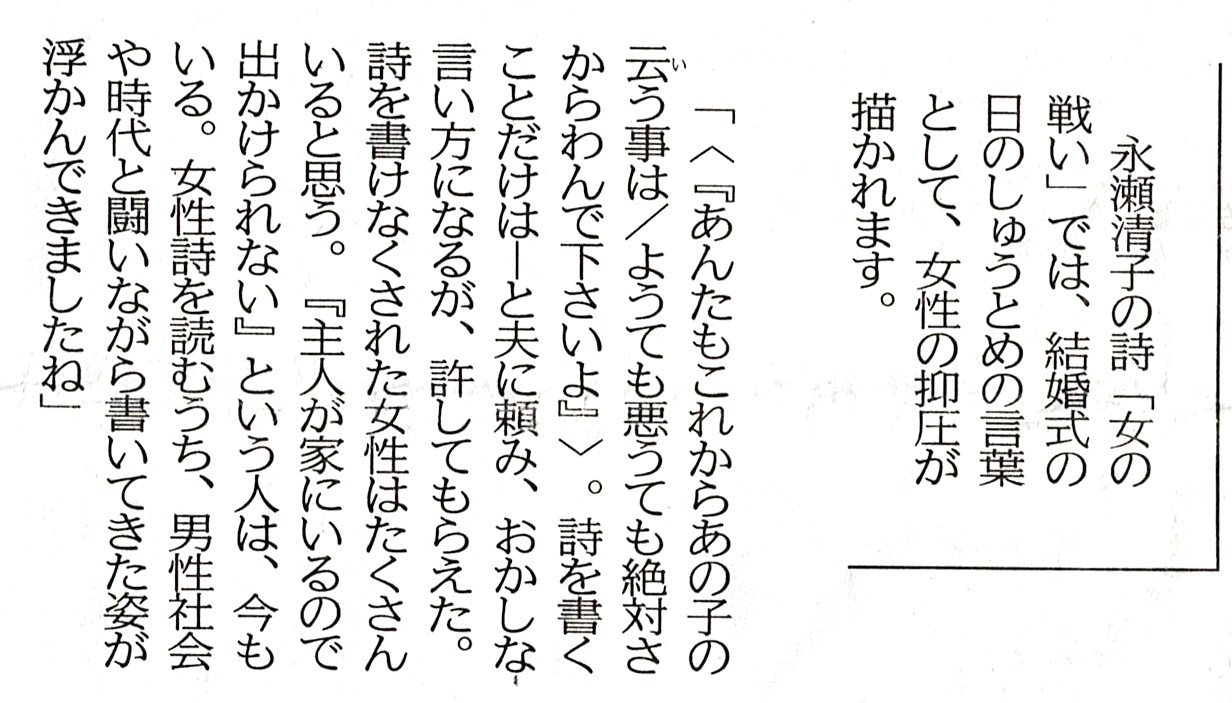 永瀬清子の詩「女の
戦い」では、結婚式の
日のしゅうとめの言葉
として、女性の抑圧が
描かれます。
「〈『あんたもこれからあの子の
云う事は／ようても悪うても絶対さ
からわんで下さいよ』〉。詩を書く
ことだけは―と夫に頼み、おかしな
言い方になるが、許してもらえた。
詩を書けなくされた女性はたくさん
いると思う。『主人が家にいるので
出かけられない』という人は、今も
いる。女性詩を読むうち、男性社会
や時代と闘いながら書いてきた姿が
浮かんできましたね」